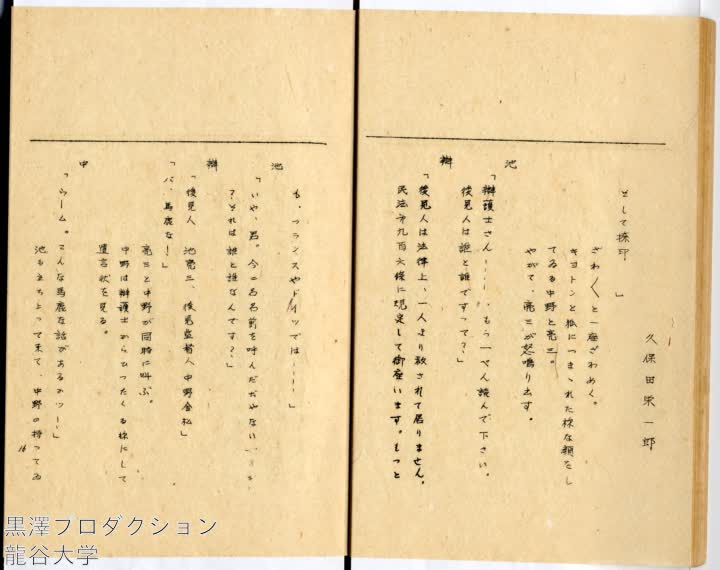 久保田栄一郎
として捺印　」
ざわ〳〵と一座ざわめく。
キヨトンと狐につまゝれた様な顔をし
てゐる中野と亮三。
やがて、亮三が怒鳴り出す。
池
「辯護士さん……。もう一ぺん読んで下さい。
後見人は誰と誰ですって？」
辯
「後見人は法律上、一人より許されて居りません。
民法第九百六條に規定して御座います。もっと
も、フランスやドイツでは……」
池
「いや、君。今二名名前を呼んだぢやないか
？それは誰と誰なんです？」
辯
「後見人　池亮三、後見監督人中野金松」
「バ、馬鹿な！」
亮三と中野が同時に叫ぶ。
中野は辯護士からひったくる様にして
遺言状を見る。
中
「ウーム。こんな馬鹿な話があるかッ！」
池も立ち上って来て、中野の持ってゐ
16
黒澤プロダクション
龍谷大学